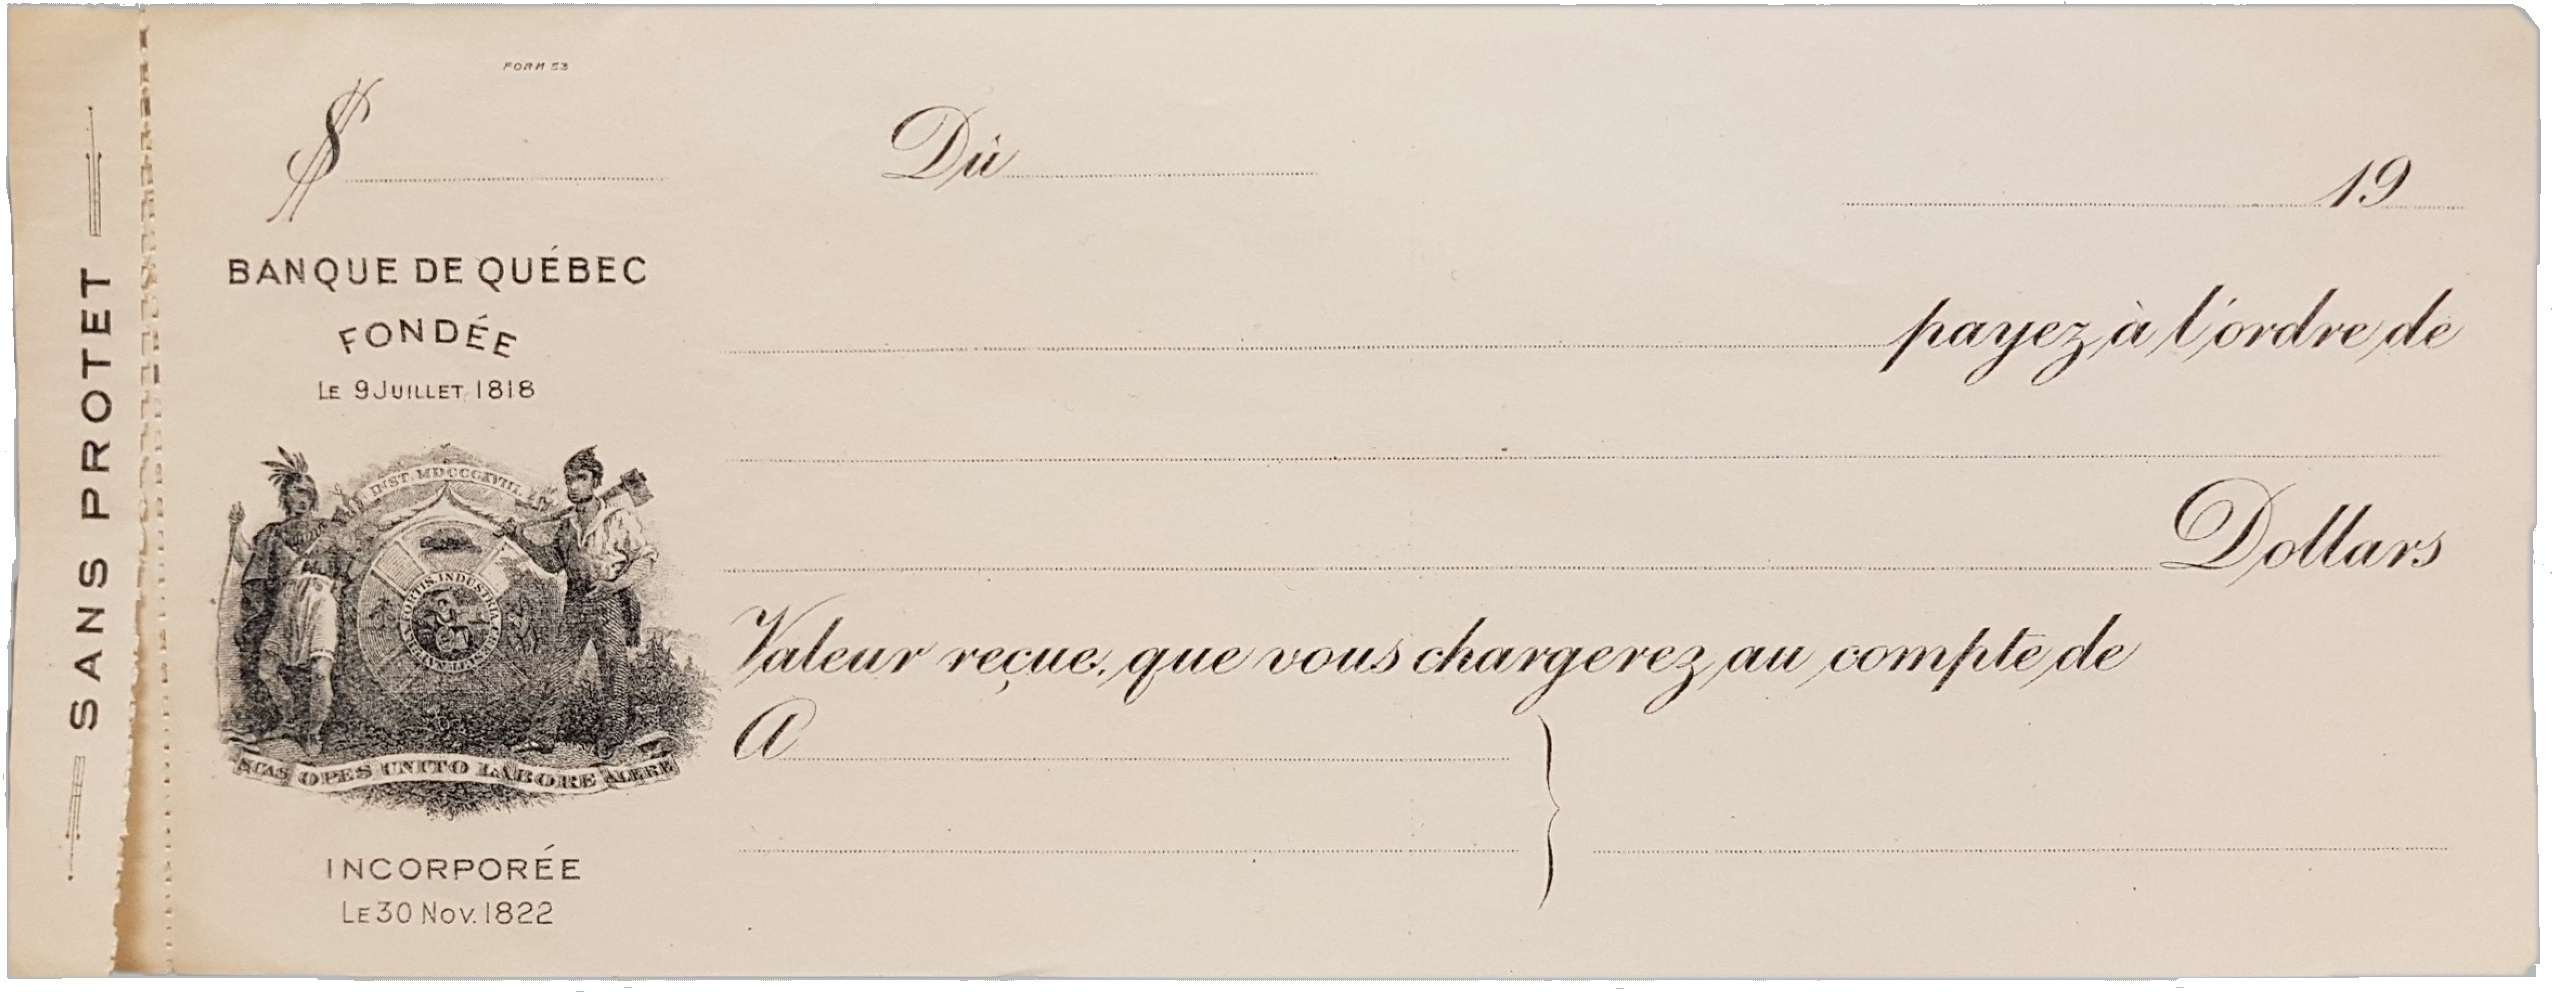 SANS PROTET
FORM 53
$
Dû
19
BANQUE DE QUÉBEC
FONDÉE
LE 9 JUILLET, 1818
payez à l'ordre de
INST. MDCCCXVIII.
Dollars
INDUSTRIA
Valeur reçue, que vous chargerez au compte de
A
OPES UNITO LABORE
INCORPORÉE
LE 30 NOV. 1822